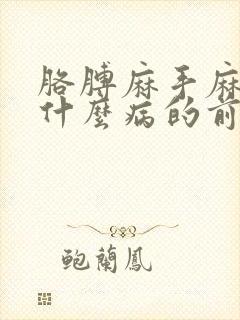 胳膊麻手麻
什麼病的前
鲍蘭鳳